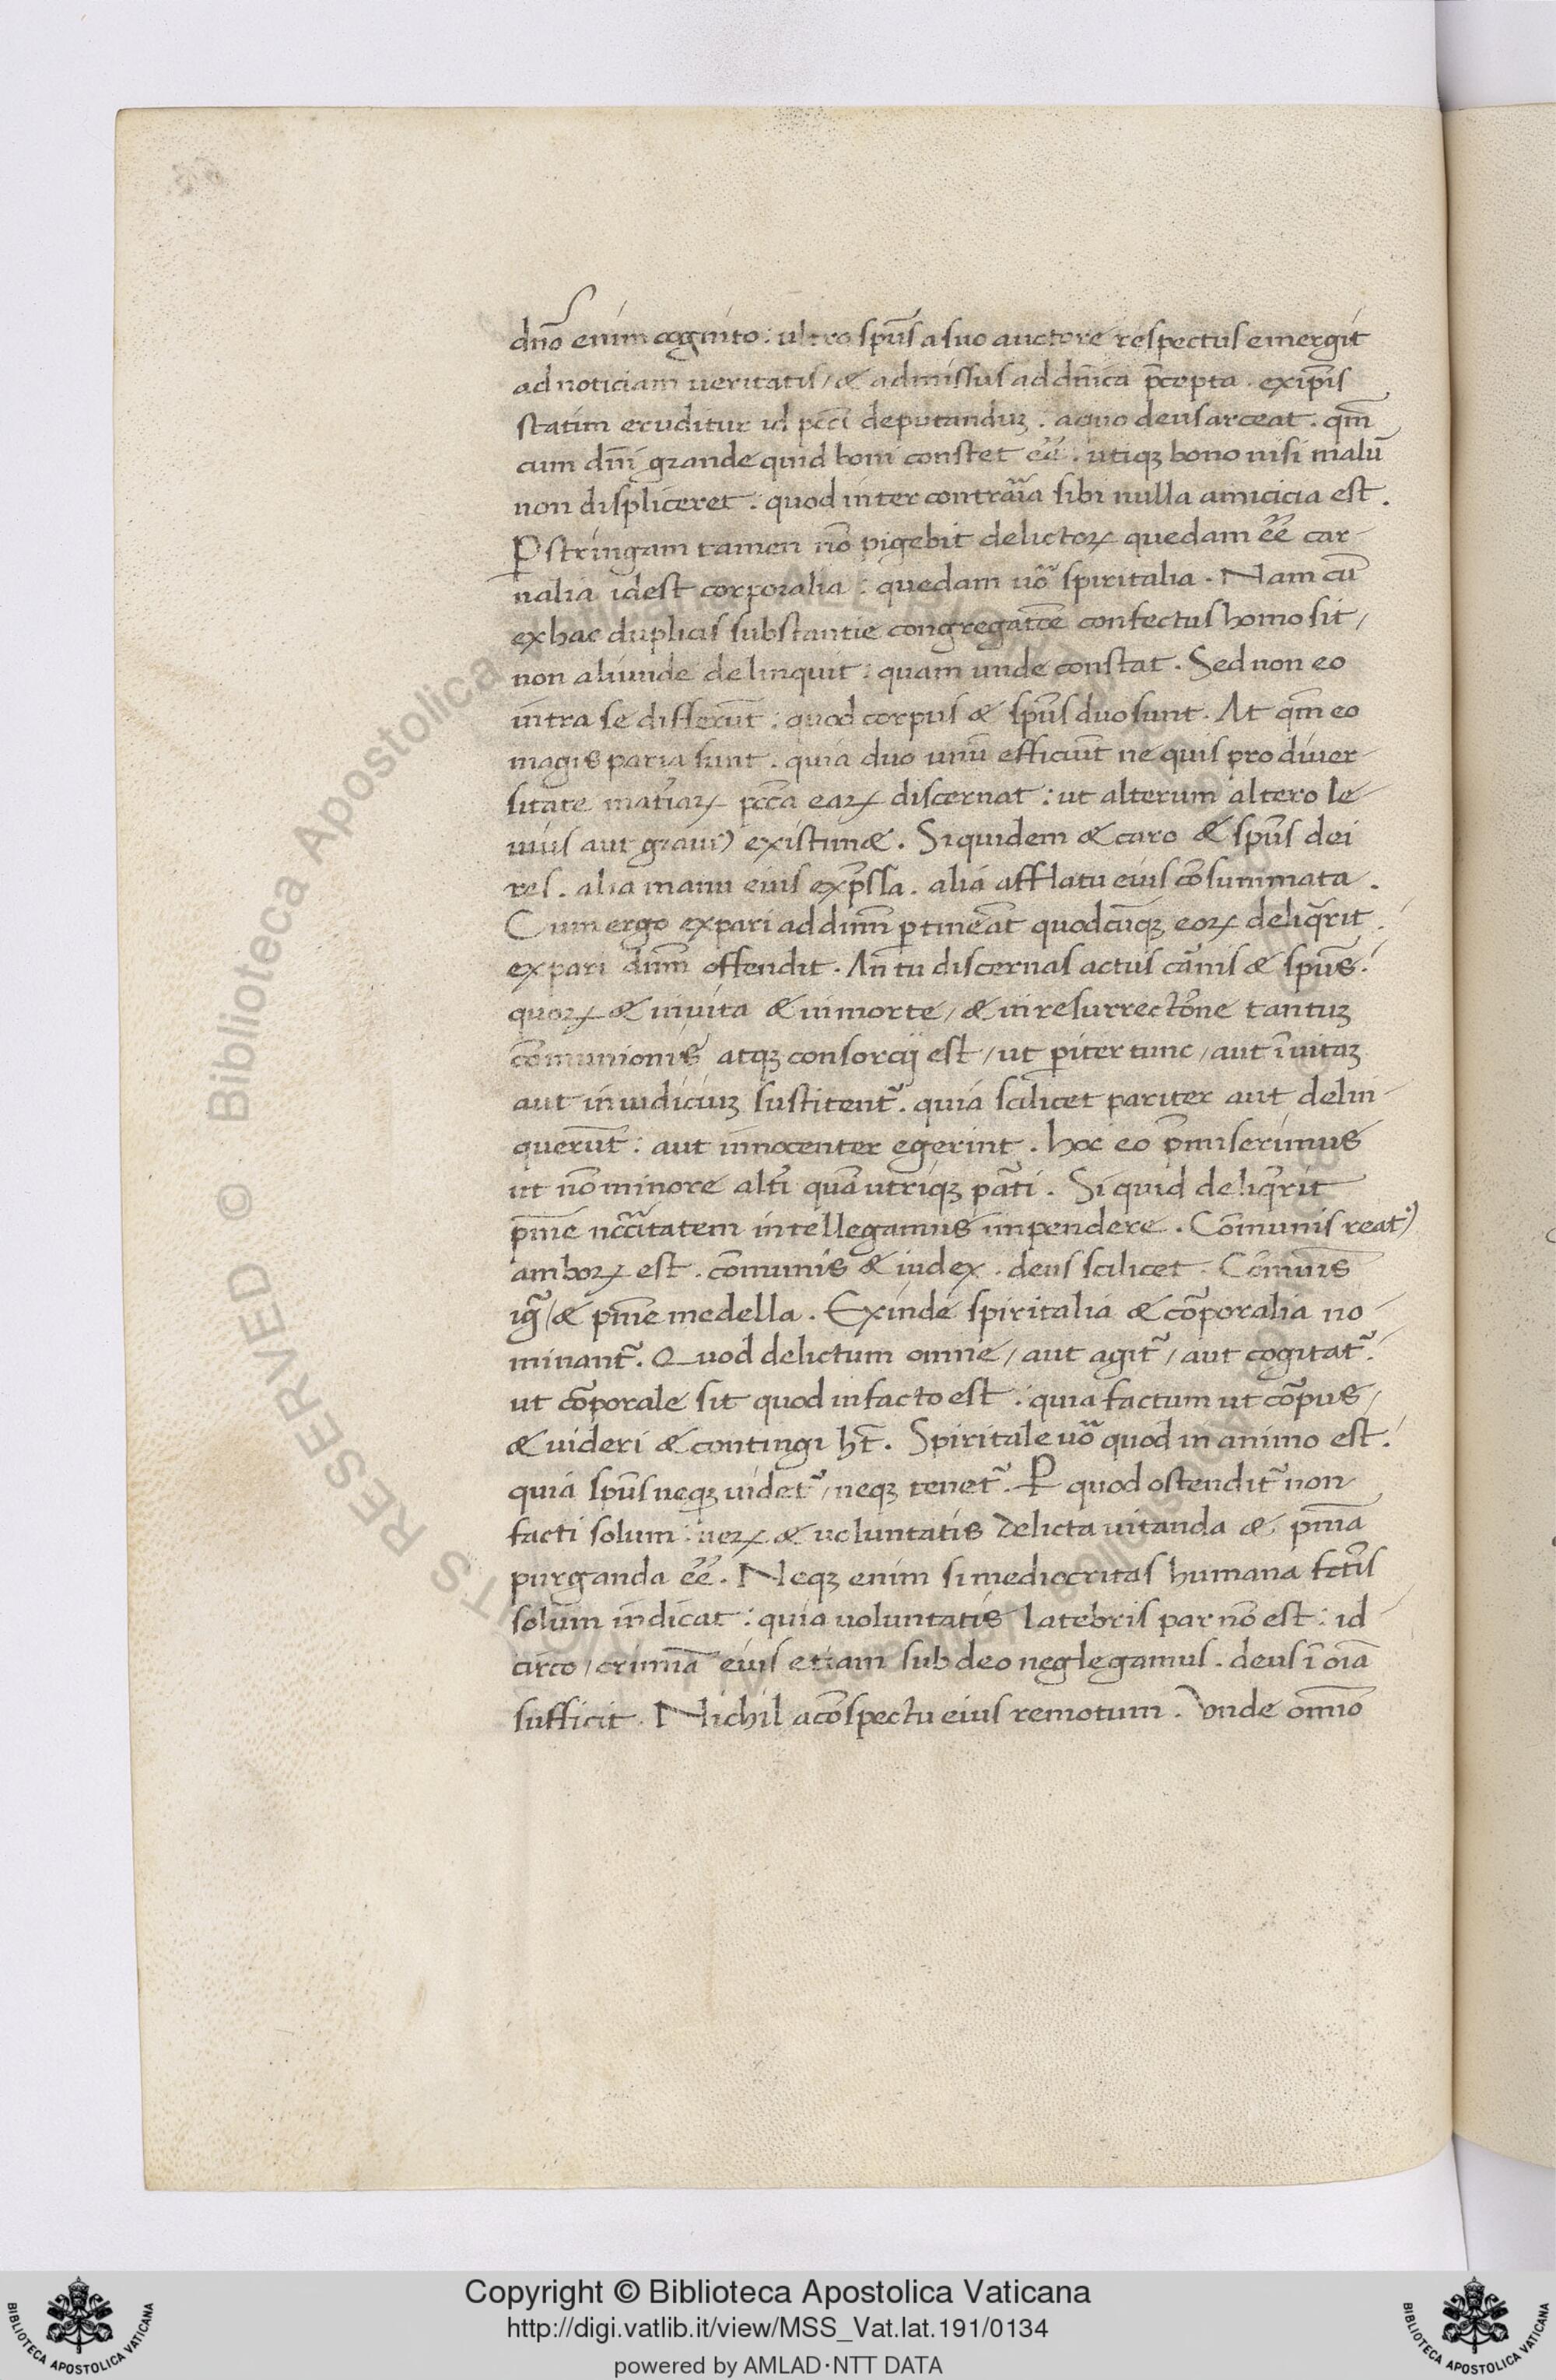 dn̄o enim cognito : ultro sp̄us a suo auctore respectus emergit
ad noticiam ueritatis / & admissus ad dn̄ica p̄cepta . ex ip̄is
statim eruditur id pcc̄i deputanduʒ . a quo deus arceat . qm̄
cum dn̄i grande quid boni constet eē . utiqʒ bono nisi malū
non displiceret : quod inter contrāia sibi nulla amicicia est .
P̱stringam tamen nō pigebit delictoꝝ quedam eē car-
nalia idest corporalia : quedam uō spiritalia . Nam cū
ex hac duplicis substantie congregatōe confectus homo sit /
non aliunde delinquit : quam unde constat . Sed non eo
intra se differūt : quod corpus & sp̄us duo sunt . At qm̄ eo
magis paria sunt . quia duo unū efficiūt ne quis pro diuer-
sitate mat̄iaꝝ pcc̄a eaꝝ discernat : ut alterum altero le-
uius aut grauiꝰ existim& . Siquidem & caro & sp̄us dei
res . alia manu eius exp̄ssa . alia afflatu eius cōsummata .
Cum ergo ex pari ad dn̄m ꝑtineāt quodcūqʒ eoꝝ deliq̄rit .
ex pari dn̄m offendit . An̄ tu discernas actus cānis & sp̄us .
quoꝝ & in uita & in morte / & in resurrectōne tantuʒ
cōmunionis atqʒ consorcij est / ut ꝑiter tunc / aut ī uitaʒ
aut in iudiciuʒ suscitent̄ . quia scilicet pariter aut delin-
querūt : aut innocenter egerint . hoc eo p̄miserimus
ut nō minore alt̄i quā utriqʒ pāti . Si quid deliq̄rit
pn̄ie ncc̄itatem intellegamus impendere . Cōmunis reatꝰ
amboꝝ est . cōmunis & iudex . deus scilicet . Cōmuis
igr̄ / & pn̄ie medella . Exinde spiritalia & cōporalia no-
minant̄ . Quod delictum omne / aut agit̄ / aut cogitat̄ .
ut cōporale sit quod in facto est : quia factum ut cōpus /
& uideri & contingi ht̄ . Spiritale uō quod in animo est .
quia sp̄us neqʒ uidet̄ / neqʒ tenet̄ . Ꝑ quod ostendit̄ non
facti solum : ueꝝ & uoluntatis delicta uitanda & pn̄ia
purganda eē . Neqʒ enim si mediocritas humana fct̄is
solum indicat : quia uoluntatis latebris par nō est : id-
circo / crimīa eius etiam sub deo neglegamus . deus ī oīa
sufficit . Nichil a cōspectu eius remotum . Vnde omīo
© Biblioteca Apostolica Vaticana ALL RIGHTS RESERVED
Copyright © Biblioteca Apostolica Vaticana
http://digi.vatlib.it/view/MSS_Vat.lat.191/0134
powered by AMLAD·NTT DATA
BIBLIOTECA APOSTOLICA VATICANA
BIBLIOTECA APOSTOLICA VATICANA